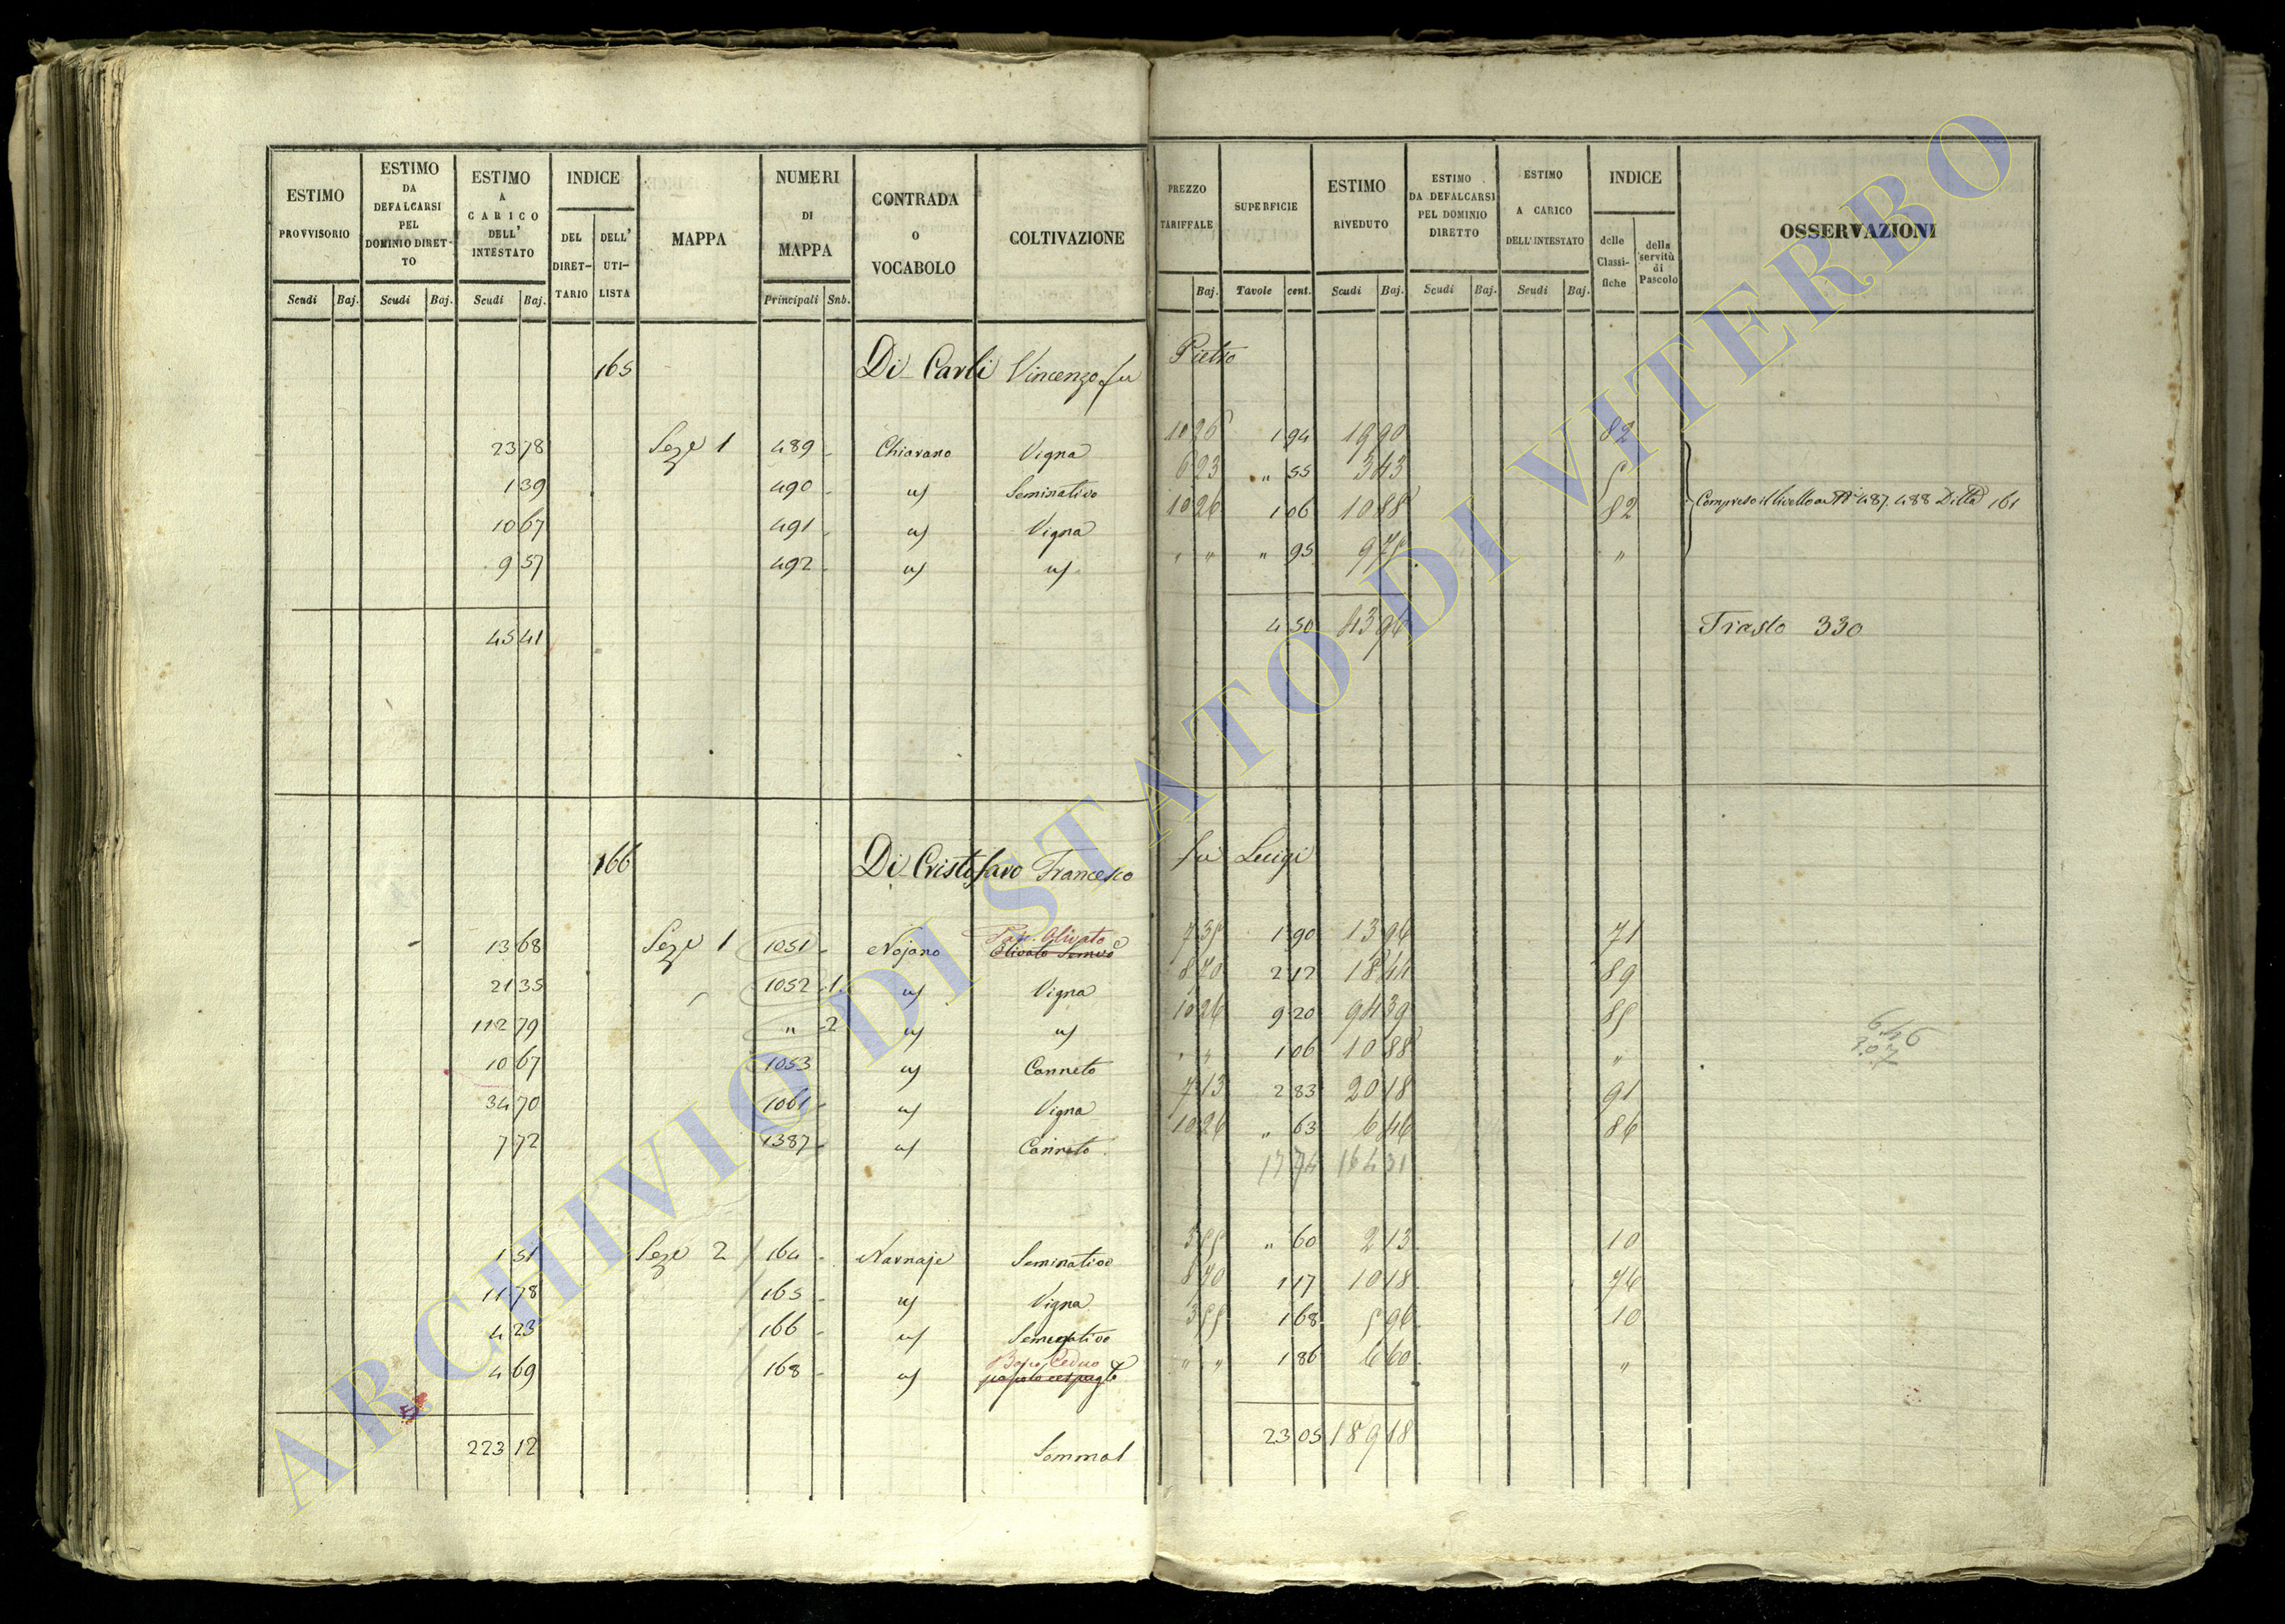 ESTIMO PROVVISORIO | ESTIMO DA DEFALCARSI PEL DOMINIO DIRET-TO | ESTIMO A CARICO DELL' INTESTATO | INDICE DEL DIRET-TARIO | DELL' UTI-LISTA | MAPPA | NUMERI DI MAPPA | CONTRADA O VOCABOLO | COLTIVAZIONE | PREZZO TARIFFALE | SUPERFICIE | ESTIMO RIVEDUTO | ESTIMO DA DEFALCARSI PEL DOMINIO DIRETTO | ESTIMO A CARICO DELL'INTESTATO | INDICE delle Classi-fiche | della servitù di Pascolo | OSSERVAZIONI
Scudi | Baj. | Scudi | Baj. | Scudi | Baj. | Principali | Snb. | Baj. | Tavole | cent. | Scudi | Baj. | Scudi | Baj. | Scudi | Baj.
165 Di Carli Vincenzo fu Pietro
23 78 Seze 1 489 Chiavano Vigna 10 26 1 94 19 90 82
1 39 490 Seminativo 6 23 " 55 3 43 5
10 67 491 Vigna 10 26 1 06 10 88 82
9 57 492 " " " 95 9 75 "
Compreso il livello ai 487. 488 Ditta 161
45 41 4 50 43 96 Trasto 330
166 Di Cristofaro Francesco fu Luigi
Olivato
13 68 Seze 1 1051 Nojano Olivato 7 35 1 90 13 96 71
21 35 1052 1 Vigna 8 70 2 12 18 44 89
112 79 " 2 10 26 9 20 94 39 85
10 67 1053 Canneto " " 1 06 10 88 "
34 70 1061 Vigna 7 13 2 83 20 18 91
7 72 1387 Canneto 10 26 " 63 6 46 86
17 74 164 31
646
1 51 Seze 2 164 Narnaje Seminativo 3 55 " 60 2 13 10
11 78 165 Vigna 8 70 1 17 10 18 76
4 23 166 Seminativo 3 55 1 68 5 96 10
Ceduo
4 69 168 " " 1 86 6 60 "
223 12 Somma 23 05 189 18
ARCHIVIO DI STATO DI VITERBO